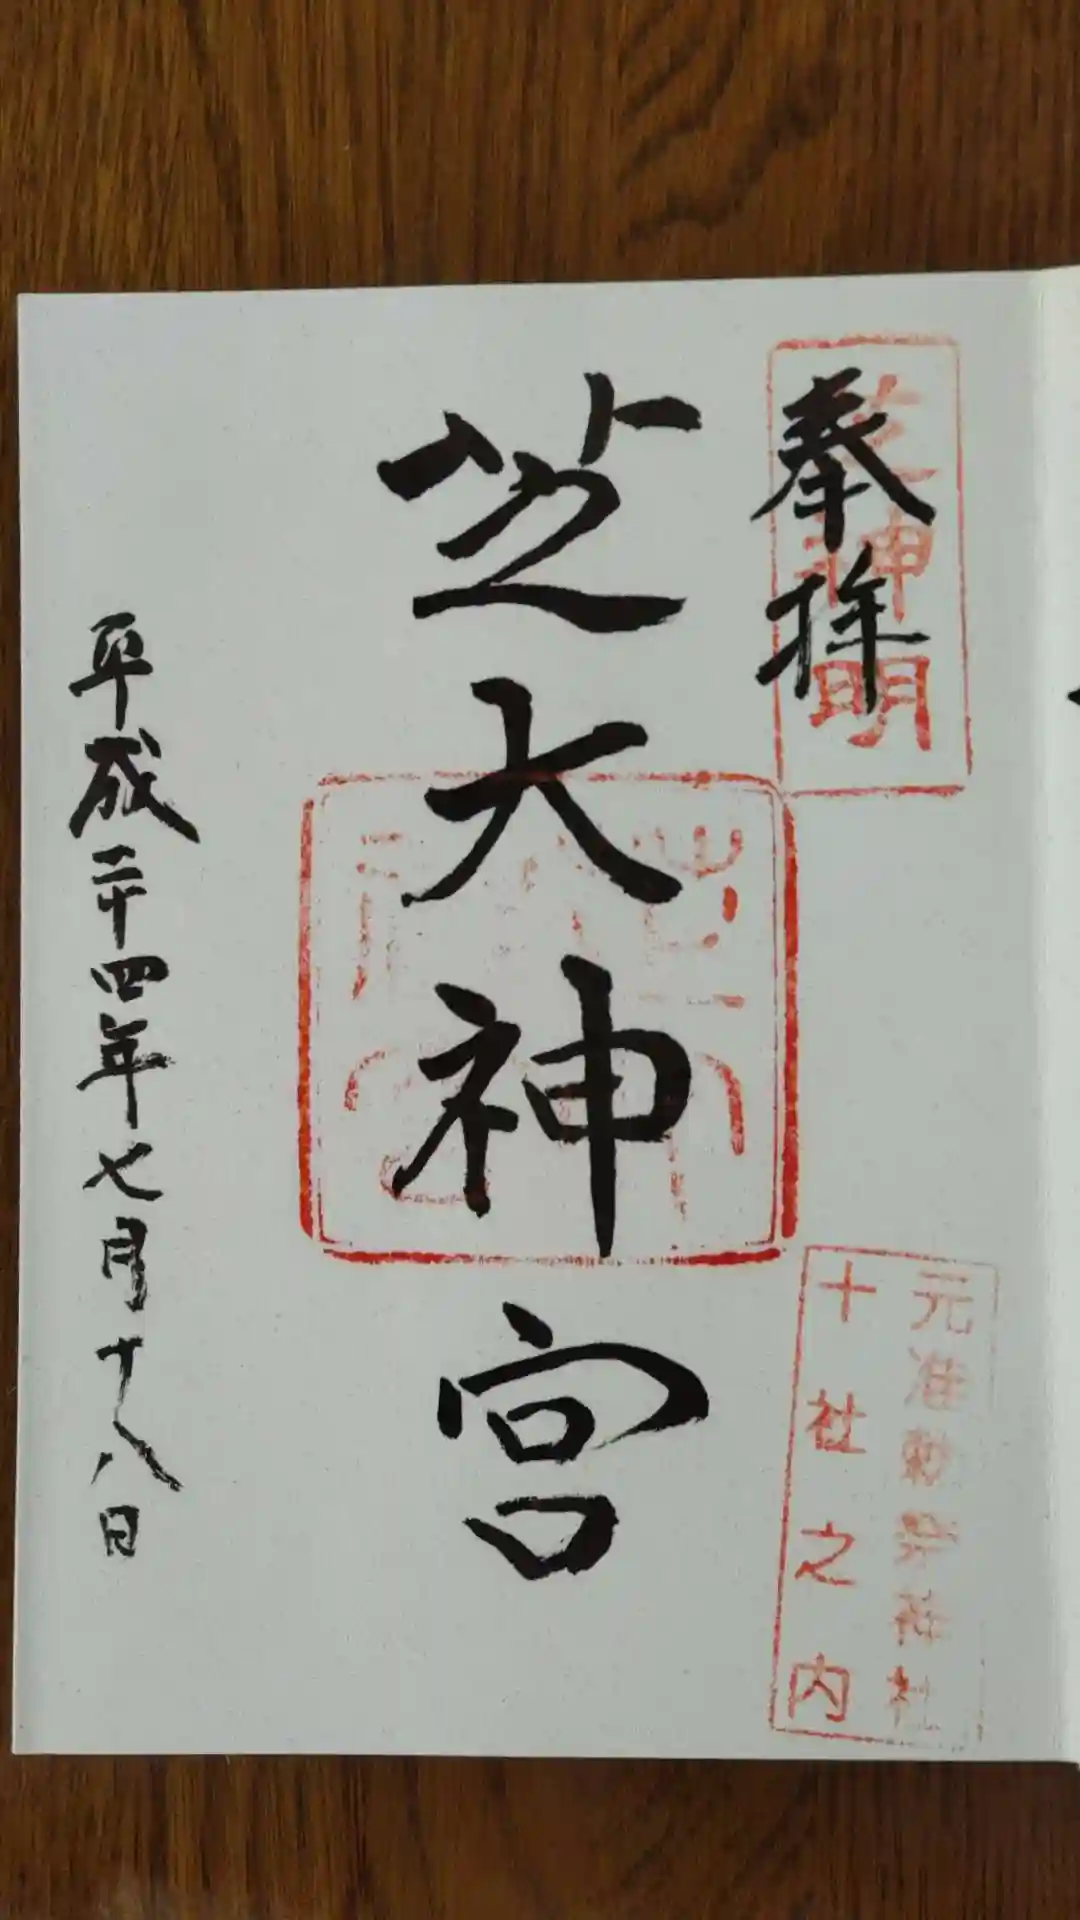 奉拝
芝神明
元准勅祭神社
十社之内
芝大神宮
平成二十四年七月十八日